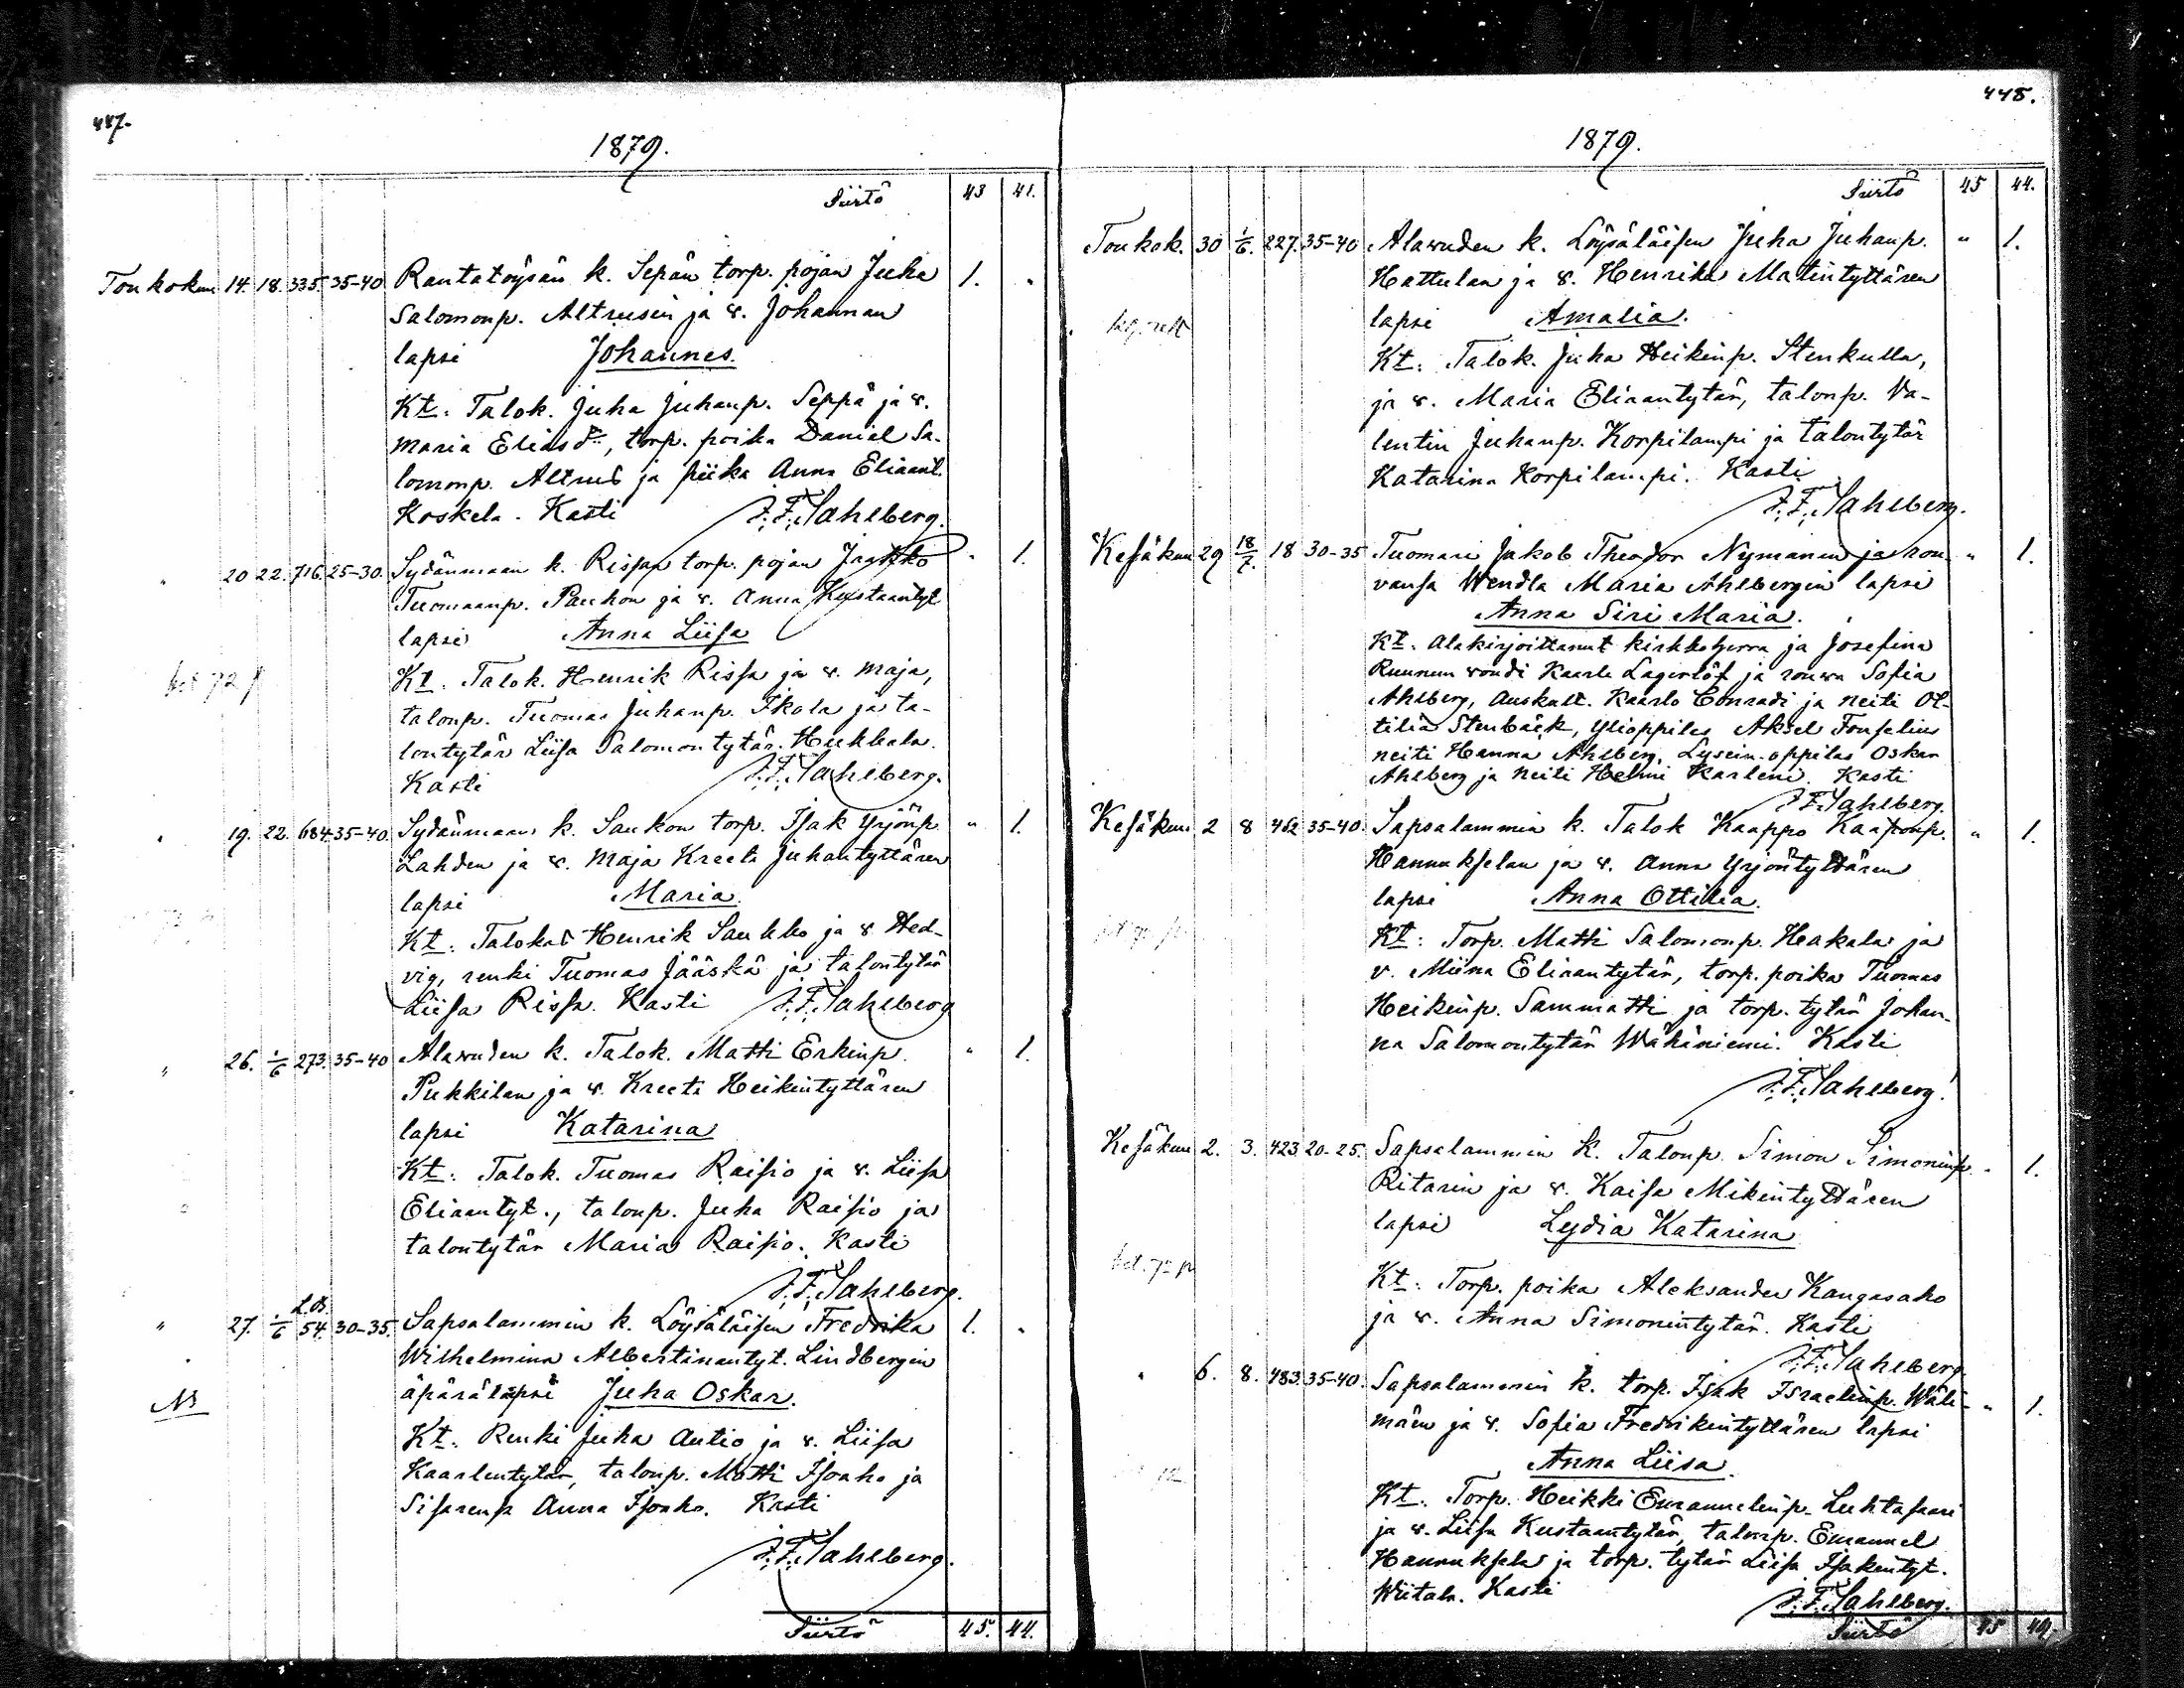 447.
1879.
Siirto 43 41.
Toukokuu 14. 18. 335. 35-40 Rantatöysän k. Sepän torp. pojan Juha 1. "
Salomonp. Altrusin ja v. Johannan
lapsi Johannes.
Kt: Talok. Juha Juhanp. Seppä ja v.
Maria Eliasdr, torp. poika Daniel Sa-
lomonp. Altrus ja piika Anna Eliaant.
Koskela. Kasti J. F. Sahlberg.
" 20 22. 716. 25-30. Sydänmaan k. Rissan torp. pojan Jaakko " 1.
Tuomaanp. Paukon ja v. Anna Kustaantyt
lapsi Anna Liisa
Kt: Talok. Henrik Rissa ja v. Maja,
talonp. Tuomas Juhanp. Ikola ja ta-
lontytär Liisa Salomontytär Heikkala.
Kasti J. F. Sahlberg.
" 19. 22. 684. 35-40. Sydänmaan k. Saukon torp. Isak Yrjönp. " 1.
Lahden ja v. Maja Kreeta Juhantyttären
lapsi Maria.
Kt: Talokas Henrik Saukko ja v Hed-
vig, renki Tuomas Jääskä ja talontytär
Liisa Rissa. Kasti J. F. Sahlberg
" 26. 1/6 273. 35-40 Alavuden k. Talok. Matti Erkinp. " 1.
Pukkilan ja v. Kreeta Heikintyttären
lapsi Katarina
Kt: Talok. Tuomas Raisio ja v. Liisa
Eliaantyt., talonp. Juha Raisio ja
talontytär Maria Raisio. Kasti
J. F. Sahlberg.
L.B.
" 27. 1/6 54. 30-35. Sapsalammin k. Löysäläisen Fredrika 1. "
Wilhelmina Albertinantyt. Lindbergin
äpärälapsi Juha Oskar.
Kt: Renki Juha Autio ja v. Liisa
Kaarlentytär, talonp. Matti Isoaho ja
Sisarensa Anna Isoaho. Kasti
J. F. Sahlberg.
Siirto 45. 44.
448.
1879.
Siirto 45 44.
Toukok. 30 1/6. 227. 35-40 Alavuden k. Löysäläisen Juha Juhanp. " 1.
Hattulan ja v. Henrika Matintyttären
lapsi Amalia.
Kt: Talok. Juha Heikinp. Stenkulla,
ja v. Maria Eliaantytär, talonp. Va-
lentin Juhanp. Korpilampi ja talontytär
Katarina Korpilampi. Kasti
J. F. Sahlberg.
Kesäkuu 29 18/7. 18 30-35 Tuomari Jakob Theodor Nymanin ja rou- " 1.
vansa Wendla Maria Ahlbergin lapsi
Anna Siri Maria.
Kt: Alakirjoittanut kirkkoherra ja Josefina
Ruunun voudi Kaarlo Lagerlöf ja rouva Sofia
Ahlberg, Auskult. Kaarlo Conradi ja neiti Ot-
tilia Stenbäck, Ylioppilas Aksel Fonselius
neiti Hanna Ahlberg, Lysein oppilas Oskar
Ahlberg ja neiti Helmi Karleni. Kasti
J F Sahlberg.
Kesäkuu 2 8 452 35-40. Sapsalammin k. Talok Kaappo Kaaponp. " 1.
Hannukselan ja v. Anna Yrjöntyttären
lapsi Anna Ottilia.
Kt: Torp. Matti Salomonp. Heakala ja
v. Miina Eliaantytär, torp. poika Tuomas
Heikinp. Sammatti ja torp. tytär Johan-
na Salomontytär Wähäniemi. Kasti
J. F. Sahlberg.
Kesäkuu 2. 3. 423. 20-25. Sapsalammin k. Talonp. Simon Simoninp. " 1.
Ritarin ja v. Kaisa Mikintyttären
lapsi Lydia Katarina
Kt: Torp. poika Aleksander Kangasaho
ja v. Anna Simonintytär. Kasti
J. F. Sahlberg
" 6. 8. 483. 35-40. Sapsalammin k. torp. Isak Israelinp. Wäli- " 1.
mäen ja v. Sofia Fredrikintyttären lapsi
Anna Liisa.
Kt: Torp. Heikki Emanuelinp. Luhtasaari
ja v. Liisa Kustaantytär, talonp. Emanuel
Hannuksela ja torp. tytär Liisa Isakintyt.
Wiitala. Kasti J. F. Sahlberg.
Siirto 45 49